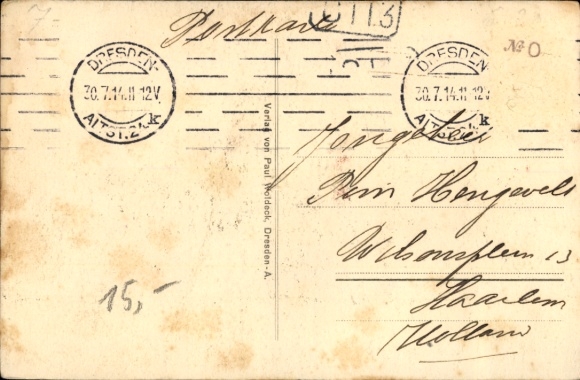 Postkarte
113
No 0
DRESDEN-
30.7.14.11-12V.
ALTST.24 k
DRESDEN
30.7.14.11-12V
ALTST.24 k
Verlag von Paul Woldeck, Dresden-A.
Jongeheer
Pim Hengeveld
Wilsonsplein 13
Haarlem
Holland
15,-